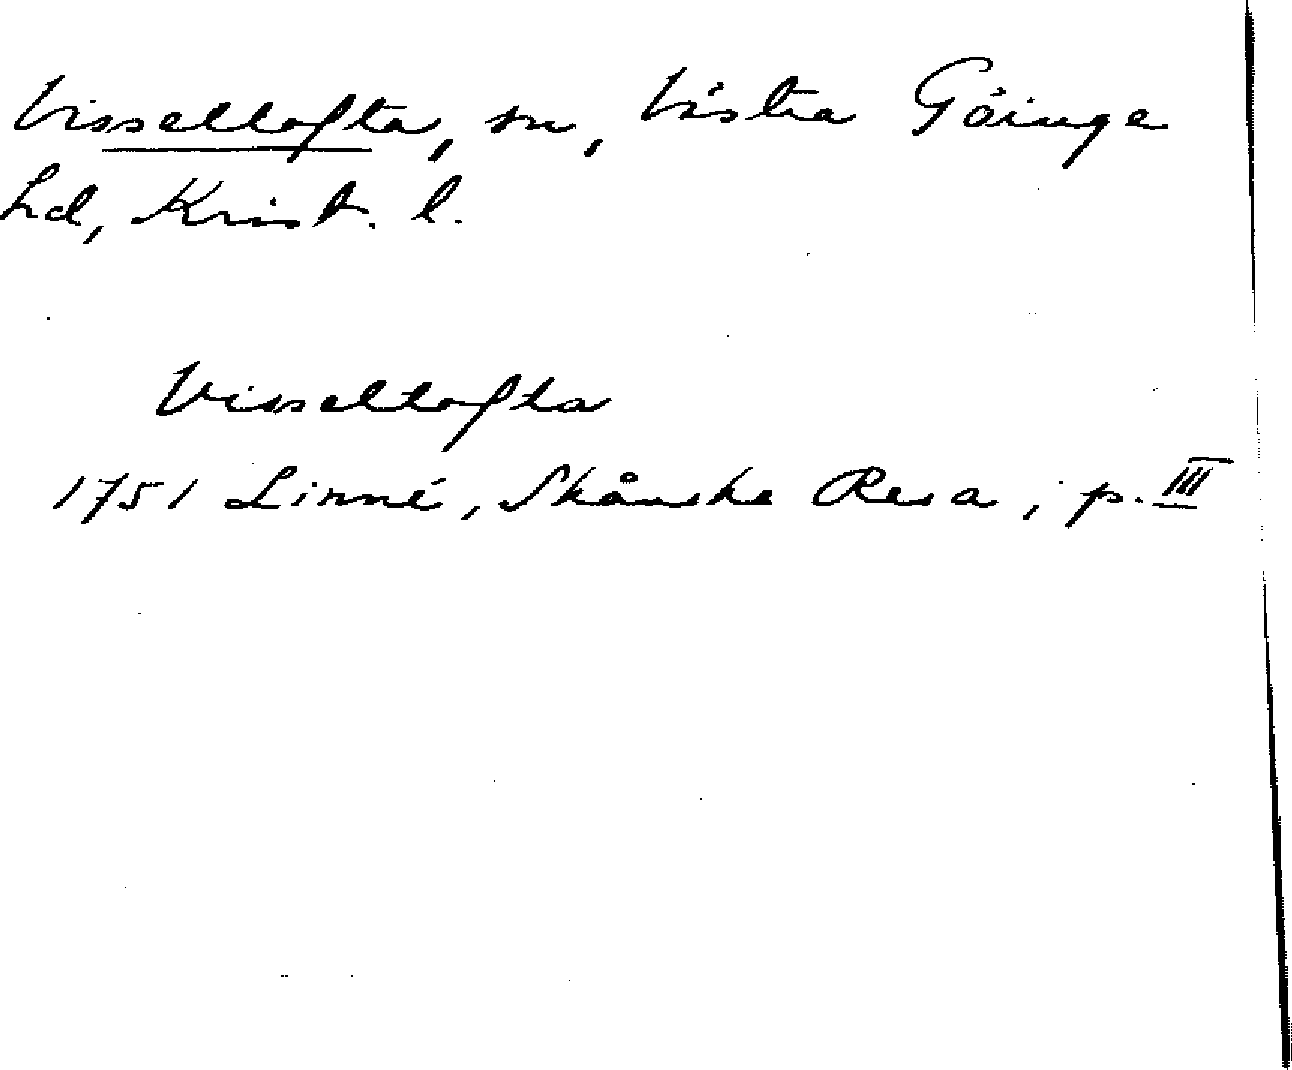 Visseltofta, sn, Västra Göinge
hd, Krist. l.
Visseltofta
1751 Linné, Skånska Resa, p. III